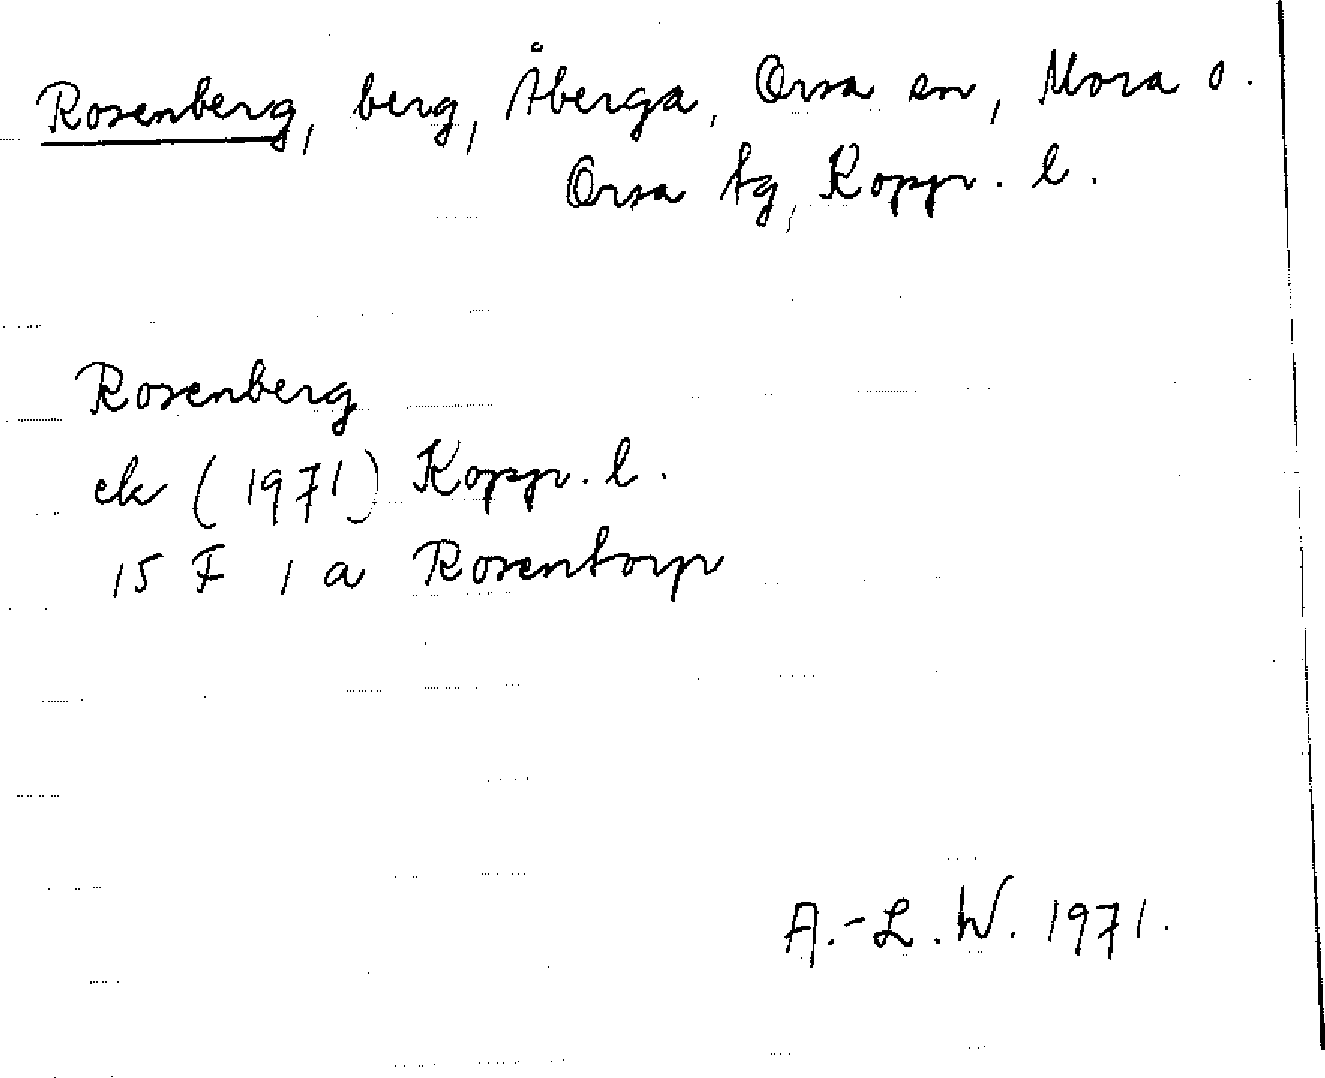 Rosenberg, berg, Åberga, Orsa sn, Mora o.
Orsa tg, Kopp. l.
Rosenberg
ek (1971) Kopp. l.
15 F 1 a Rosentorp
A.-L.W. 1971.